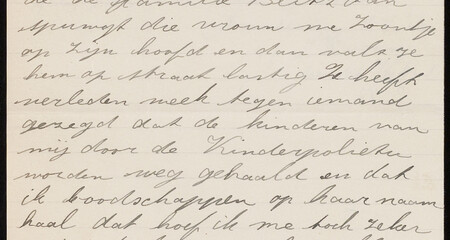 de de familie Blitz van
spuwgt die vrouw me zoontje
op zijn hoofd en dan valt ze
hem op straat lastig Ze heeft
verleden week tegen iemand
gezegd dat de kinderen van
mij door de Kinderpolietie
worden weg gehaald en dat
ik boodschappen op haar naam
haal dat hoef ik me toch zeker